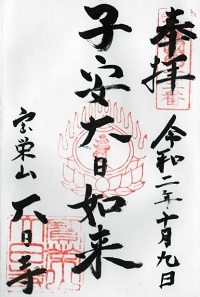 奉拝
令和二年十月九日
子安大日如来
宝栄山 大日寺